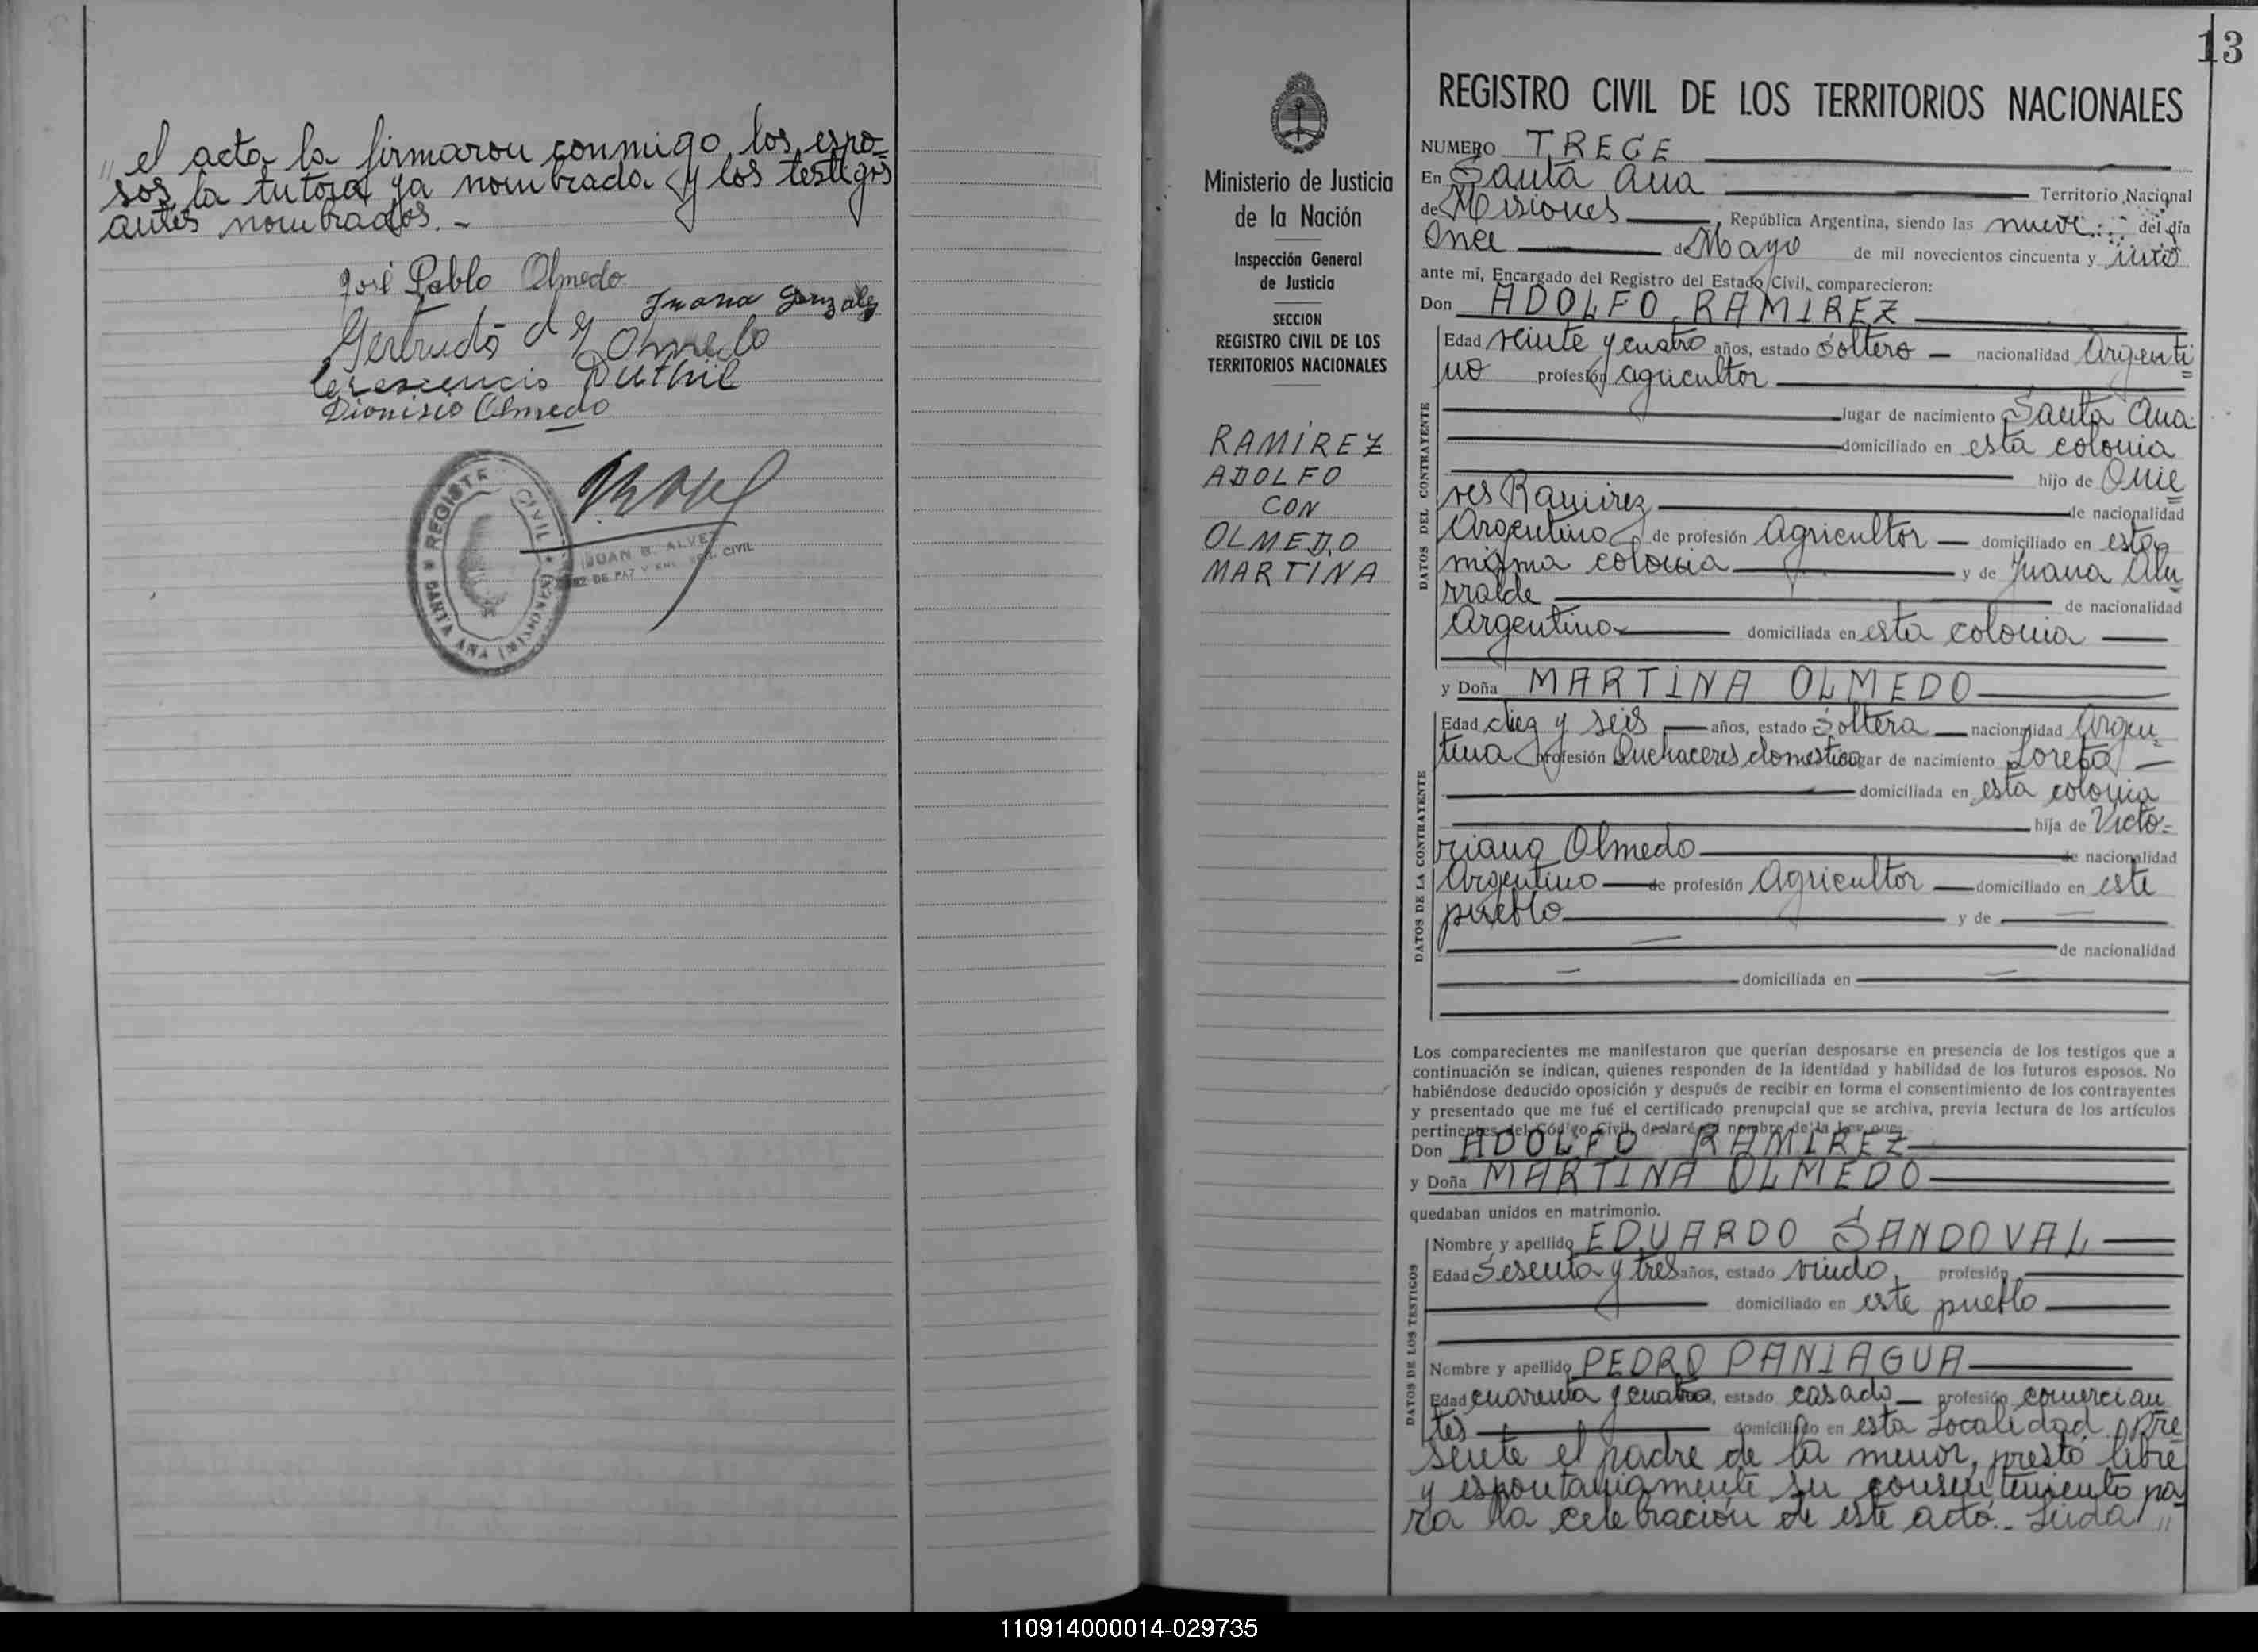 " el acta la firmaron conmigo los espo=
sos, la tutora ya nombrada y los testigos
antes nombrados. -
José Pablo Olmedo
Juana Gonzalez
Gertrudis d g Olmedo
Cresencio Duthil
Dionisio Olmedo
REGISTRO CIVIL
SANTA ANA (MISIONES)
JUAN B. ALVEZ
JUEZ DE PAZ Y ENC. REG. CIVIL
13
Ministerio de Justicia
de la Nación
Inspección General
de Justicia
SECCION
REGISTRO CIVIL DE LOS
TERRITORIOS NACIONALES
RAMÍREZ
ADOLFO
CON
OLMEDO
MARTINA
REGISTRO CIVIL DE LOS TERRITORIOS NACIONALES
NUMERO TRECE
En Santa Ana Territorio Nacional
de Misiones, República Argentina, siendo las nueve del día
Once de Mayo de mil novecientos cincuenta y uno
ante mí, Encargado del Registro del Estado Civil, comparecieron:
Don ADOLFO RAMIREZ
DATOS DEL CONTRAYENTE
Edad veinte y cuatro años, estado Soltero nacionalidad Argenti=
no profesión agricultor
lugar de nacimiento Santa Ana
domiciliado en esta colonia
hijo de Onie=
res Ramirez de nacionalidad
Argentino de profesión Agricultor domiciliado en esta
misma colonia y de Juana Alu=
rralde de nacionalidad
Argentina domiciliada en esta colonia
y Doña MARTINA OLMEDO
DATOS DE LA CONTRAYENTE
Edad diez y seis años, estado Soltera nacionalidad Argen=
tina profesión Quehaceres domestico lugar de nacimiento Loreto
domiciliada en esta colonia
hija de Victo=
riano Olmedo de nacionalidad
Argentino de profesión Agricultor domiciliado en este
pueblo y de
de nacionalidad
domiciliada en
Los comparecientes me manifestaron que querían desposarse en presencia de los testigos que a
continuación se indican, quienes responden de la identidad y habilidad de los futuros esposos. No
habiéndose deducido oposición y después de recibir en forma el consentimiento de los contrayentes
y presentado que me fué el certificado prenupcial que se archiva, previa lectura de los artículos
pertinentes del Código Civil, declaré en nombre de la Ley que:
Don ADOLFO RAMIREZ
y Doña MARTINA OLMEDO
quedaban unidos en matrimonio.
DATOS DE LOS TESTIGOS
Nombre y apellido EDUARDO SANDOVAL
Edad Sesenta y tres años, estado viudo, profesión
domiciliado en este pueblo
Nombre y apellido PEDRO PANIAGUA
Edad cuarenta y cuatro, estado casado profesión comercian
tes domiciliado en esta Localidad, Pre=
sente el padre de la menor, prestó libre
y espontaniamente su consentimiento pa=
ra la celebración de este acto.- Leida "
110914000014-029735